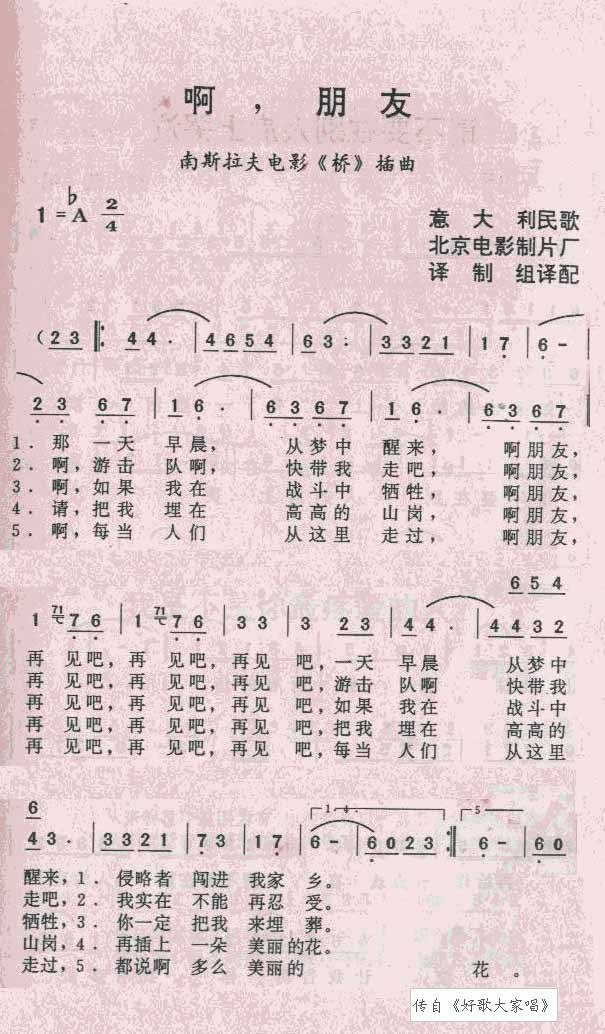 啊，朋友
南斯拉夫电影《桥》插曲
1=♭A 2/4
意大利民歌
北京电影制片厂
译制组译配
(23 ‖: 44· | 4654 | 63· | 3321 | 17 | 6-
23 67 | 16· | 6367 | 16· | 6367
1．那一天 早晨， 从梦中 醒来， 啊朋友，
2．啊，游击 队啊， 快带我 走吧， 啊朋友，
3．啊，如果 我在 战斗中 牺牲， 啊朋友，
4．请，把我 埋在 高高的 山岗， 啊朋友，
5．啊，每当 人们 从这里 走过， 啊朋友，
654
1 71 76 | 1 71 76 | 33 | 3 23 | 44· | 4432
再 见吧，再 见吧，再见 吧，一天 早晨 从梦中
再 见吧，再 见吧，再见 吧，游击 队啊 快带我
再 见吧，再 见吧，再见 吧，如果 我在 战斗中
再 见吧，再 见吧，再见 吧，把我 埋在 高高的
再 见吧，再 见吧，再见 吧，每当 人们 从这里
6 1 4. 5
43· | 3321 | 73 | 17 | 6- | 6023 :‖ 6- | 60
醒来，1．侵略者 闯进 我家 乡。
走吧，2．我实在 不能 再忍 受。
牺牲，3．你一定 把我 来埋 葬。
山岗，4．再插上 一朵 美丽的 花。
走过，5．都说啊 多么 美丽的 花。
传自《好歌大家唱》